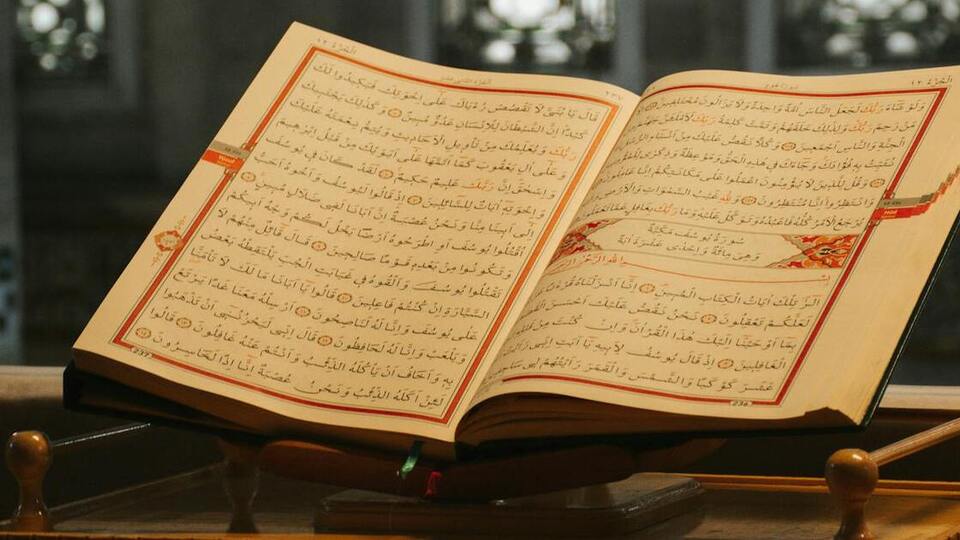 الجزء ١٢
وَلَوْ شَاءَ رَبُّكَ لَجَعَلَ النَّاسَ أُمَّةً وَاحِدَةً وَلَا يَزَالُونَ مُخْتَلِفِينَ
مَنْ رَحِمَ رَبُّكَ وَلِذَلِكَ خَلَقَهُمْ وَتَمَّتْ كَلِمَةُ رَبِّكَ لَأَمْلَأَنَّ جَهَنَّمَ مِنَ
الْجِنَّةِ وَالنَّاسِ أَجْمَعِينَ وَكُلًّا نَقُصُّ عَلَيْكَ مِنْ أَنْبَاءِ الرُّسُلِ مَا
نُثَبِّتُ بِهِ فُؤَادَكَ وَجَاءَكَ فِي هَذِهِ الْحَقُّ وَمَوْعِظَةٌ وَذِكْرَى لِلْمُؤْمِنِينَ
وَقُلْ لِلَّذِينَ لَا يُؤْمِنُونَ اعْمَلُوا عَلَى مَكَانَتِكُمْ إِنَّا عَامِلُونَ
وَانْتَظِرُوا إِنَّا مُنْتَظِرُونَ وَلِلَّهِ غَيْبُ السَّمَوَاتِ وَالْأَرْضِ
يُرْجَعُ الْأَمْرُ كُلُّهُ فَاعْبُدْهُ وَتَوَكَّلْ عَلَيْهِ وَمَا رَبُّكَ بِغَافِلٍ
سُورَةُ يُوسُفَ مَكِّيَّةٌ
وَهِيَ مِائَةٌ وَإِحْدَى عَشْرَةَ آيَةً
بِسْمِ اللَّهِ الرَّحْمَنِ الرَّحِيمِ
الر تِلْكَ آيَاتُ الْكِتَابِ الْمُبِينِ إِنَّا أَنْزَلْنَاهُ
لَعَلَّكُمْ تَعْقِلُونَ نَحْنُ نَقُصُّ عَلَيْكَ أَحْسَنَ
بِمَا أَوْحَيْنَا إِلَيْكَ هَذَا الْقُرْآنَ وَإِنْ كُنْتَ مِنْ
الْغَافِلِينَ إِذْ قَالَ يُوسُفُ لِأَبِيهِ يَا أَبَتِ إِنِّي
عَشَرَ كَوْكَبًا وَالشَّمْسَ وَالْقَمَرَ رَأَيْتُهُمْ لِي
236
الجزء ١٢
٢٣٧
قَالَ يَا بُنَيَّ لَا تَقْصُصْ رُءْيَاكَ عَلَى إِخْوَتِكَ فَيَكِيدُوا لَكَ
كَيْدًا إِنَّ الشَّيْطَانَ لِلْإِنْسَانِ عَدُوٌّ مُبِينٌ وَكَذَلِكَ يَجْتَبِيكَ
رَبُّكَ وَيُعَلِّمُكَ مِنْ تَأْوِيلِ الْأَحَادِيثِ وَيُتِمُّ نِعْمَتَهُ عَلَيْكَ
وَعَلَى آلِ يَعْقُوبَ كَمَا أَتَمَّهَا عَلَى أَبَوَيْكَ مِنْ قَبْلُ إِبْرَهِيمَ
وَإِسْحَقَ إِنَّ رَبَّكَ عَلِيمٌ حَكِيمٌ لَقَدْ كَانَ فِي يُوسُفَ
وَإِخْوَتِهِ آيَاتٌ لِلسَّائِلِينَ إِذْ قَالُوا لَيُوسُفُ وَأَخُوهُ أَحَبُّ
إِلَى أَبِينَا مِنَّا وَنَحْنُ عُصْبَةٌ إِنَّ أَبَانَا لَفِي ضَلَالٍ مُبِينٍ
اقْتُلُوا يُوسُفَ أَوِ اطْرَحُوهُ أَرْضًا يَخْلُ لَكُمْ وَجْهُ أَبِيكُمْ
وَتَكُونُوا مِنْ بَعْدِهِ قَوْمًا صَالِحِينَ قَالَ قَائِلٌ مِنْهُمْ لَا
تَقْتُلُوا يُوسُفَ وَأَلْقُوهُ فِي غَيَابَتِ الْجُبِّ يَلْتَقِطْهُ بَعْضُ
السَّيَّارَةِ إِنْ كُنْتُمْ فَاعِلِينَ قَالُوا يَا أَبَانَا مَا لَكَ لَا تَأْمَنَّا
عَلَى يُوسُفَ وَإِنَّا لَهُ لَنَاصِحُونَ أَرْسِلْهُ مَعَنَا غَدًا يَرْتَعْ
وَيَلْعَبْ وَإِنَّا لَهُ لَحَافِظُونَ قَالَ إِنِّي لَيَحْزُنُنِي أَنْ تَذْهَبُوا
بِهِ وَأَخَافُ أَنْ يَأْكُلَهُ الذِّئْبُ وَأَنْتُمْ عَنْهُ غَافِلُونَ قَالُوا
لَئِنْ أَكَلَهُ الذِّئْبُ وَنَحْنُ عُصْبَةٌ إِنَّا إِذًا لَخَاسِرُونَ
237